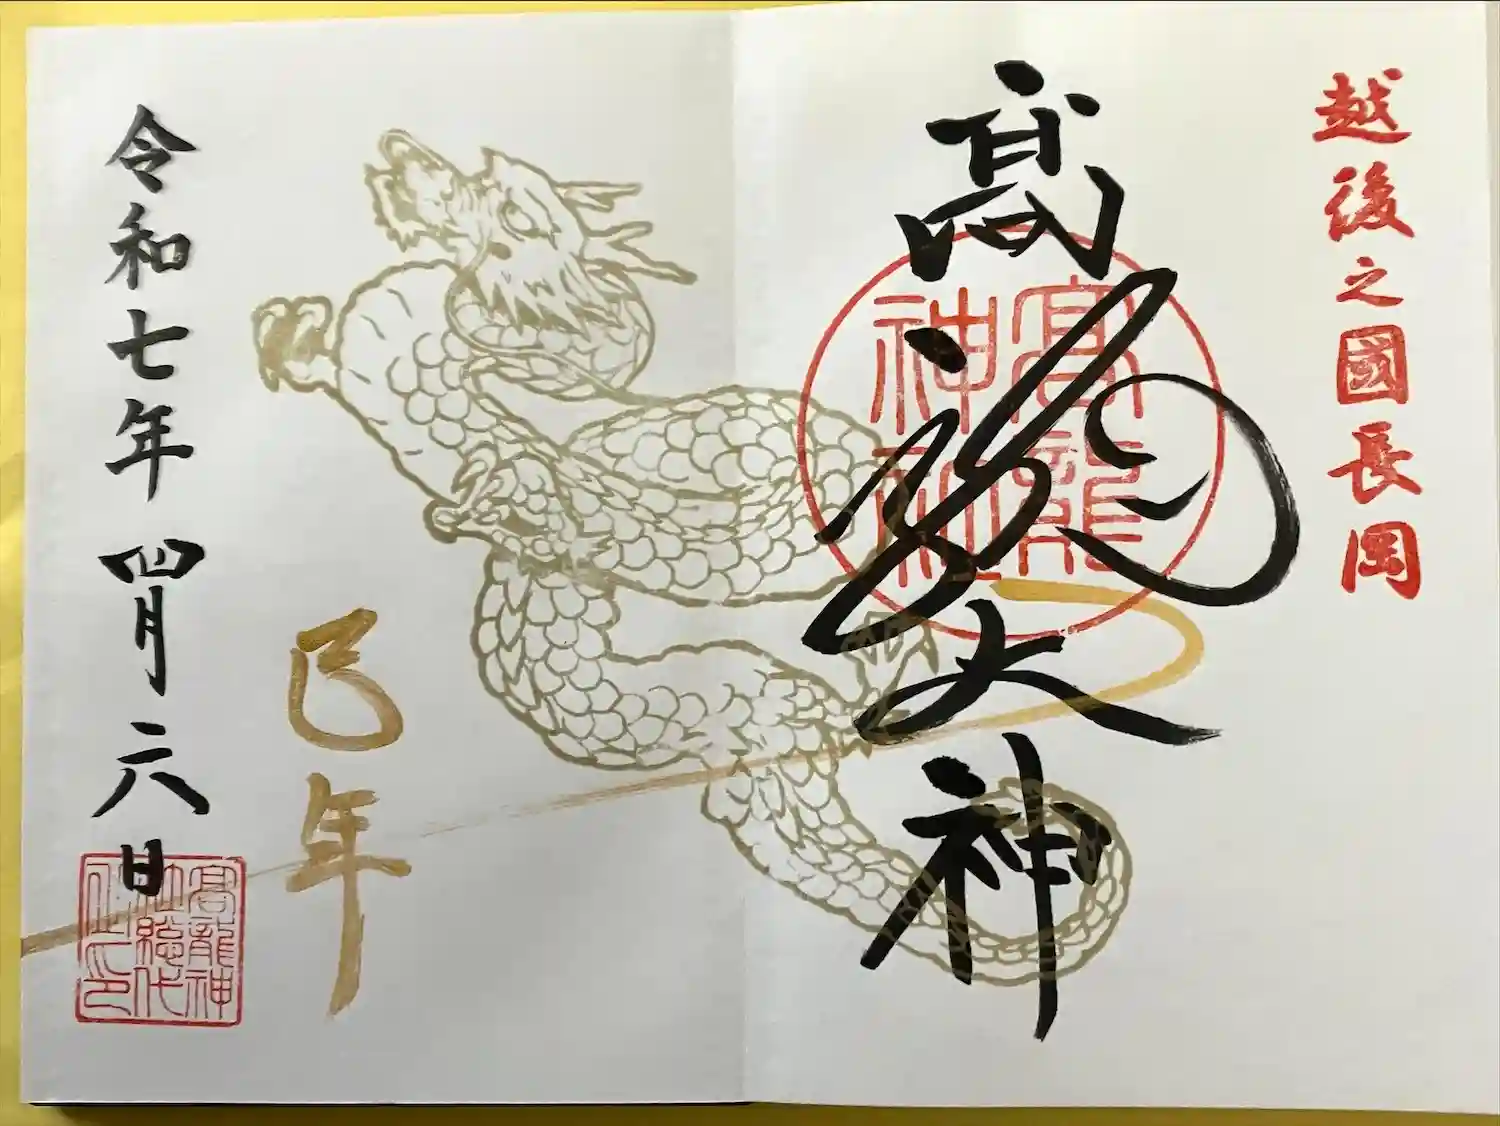 越後之國長岡
高龍大神
高龍
神社
己年
令和七年 四月 六日
高龍神
社総代
之印